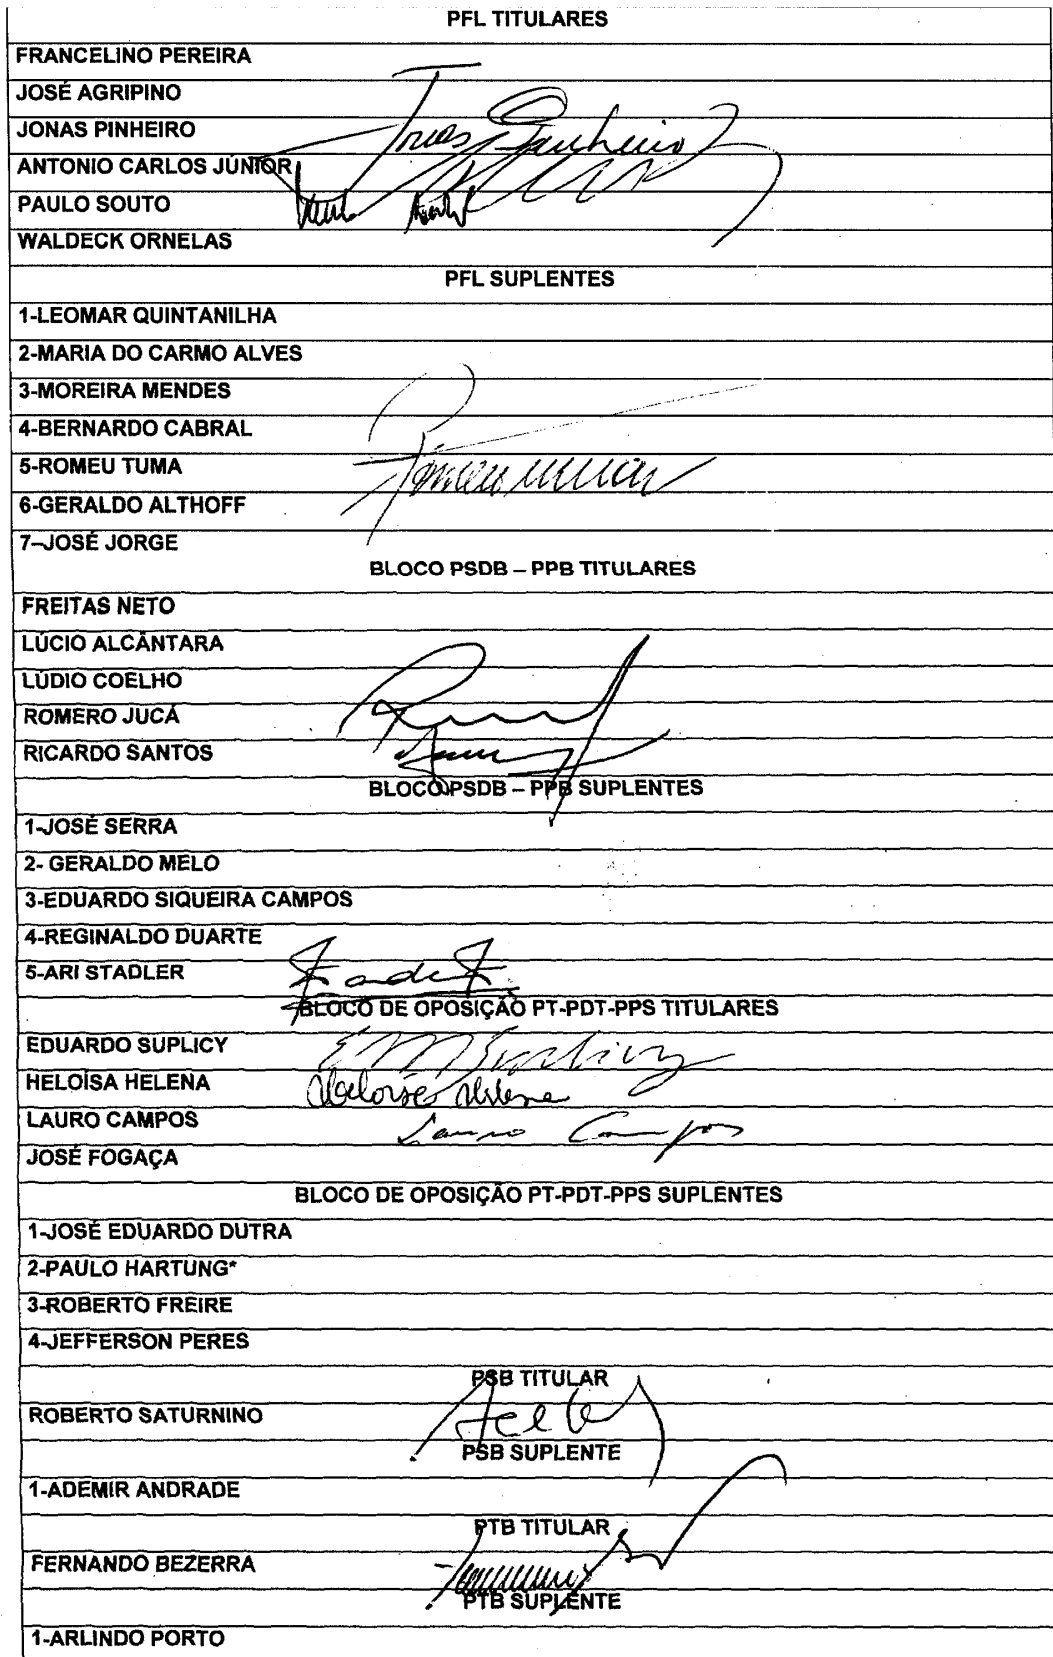 PFL TITULARES
FRANCELINO PEREIRA
JOSÉ AGRIPINO
JONAS PINHEIRO
Jonas Pinheiro
ANTONIO CARLOS JÚNIOR
PAULO SOUTO
WALDECK ORNELAS
PFL SUPLENTES
1-LEOMAR QUINTANILHA
2-MARIA DO CARMO ALVES
3-MOREIRA MENDES
4-BERNARDO CABRAL
5-ROMEU TUMA
Romeu Tuma
6-GERALDO ALTHOFF
7–JOSÉ JORGE
BLOCO PSDB – PPB TITULARES
FREITAS NETO
LÚCIO ALCÂNTARA
LÚDIO COELHO
ROMERO JUCÁ
RICARDO SANTOS
BLOCO PSDB – PPB SUPLENTES
1-JOSÉ SERRA
2- GERALDO MELO
3-EDUARDO SIQUEIRA CAMPOS
4-REGINALDO DUARTE
5-ARI STADLER
BLOCO DE OPOSIÇÃO PT-PDT-PPS TITULARES
EDUARDO SUPLICY
HELOÍSA HELENA
Heloísa Helena
LAURO CAMPOS
Lauro Campos
JOSÉ FOGAÇA
BLOCO DE OPOSIÇÃO PT-PDT-PPS SUPLENTES
1-JOSÉ EDUARDO DUTRA
2-PAULO HARTUNG*
3-ROBERTO FREIRE
4-JEFFERSON PERES
PSB TITULAR
ROBERTO SATURNINO
PSB SUPLENTE
1-ADEMIR ANDRADE
PTB TITULAR
FERNANDO BEZERRA
PTB SUPLENTE
1-ARLINDO PORTO